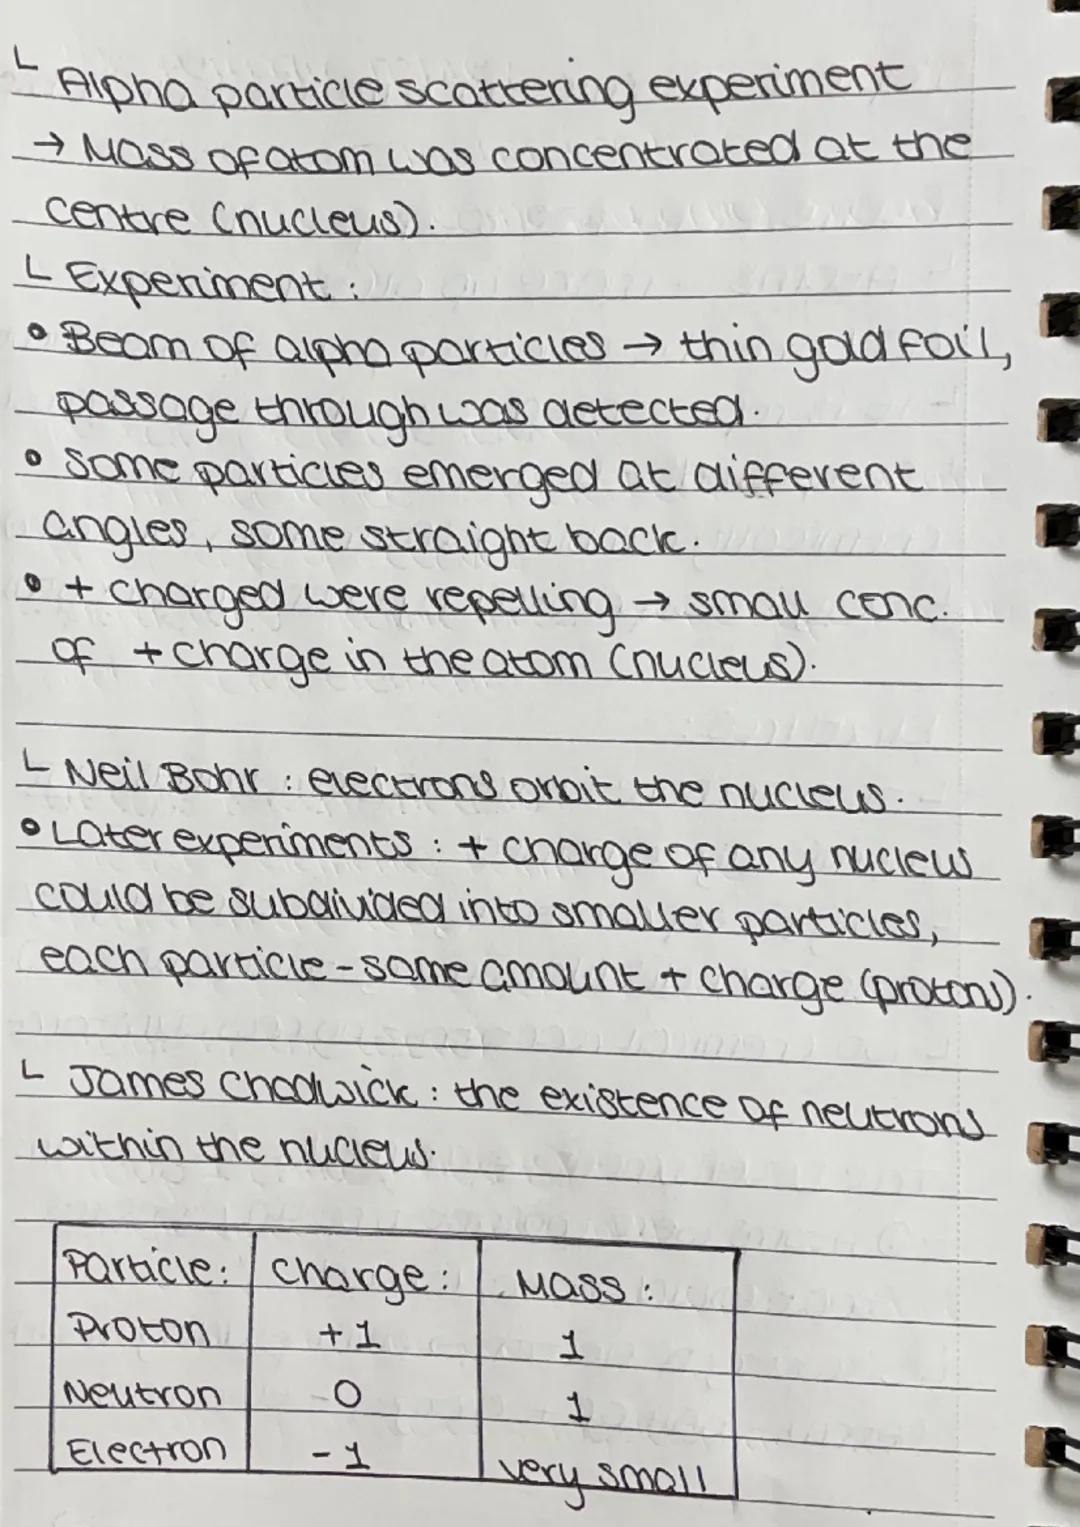 └ Alpha particle scattering experiment
→ Mass of atom was concentrated at the
centre (nucleus).
└ Experiment:
• Beam of alpha particles → thin gold foil,
passage through was detected.
• Some particles emerged at different
angles, some straight back.
• + charged were repelling → small conc.
of + charge in the atom (nucleus).
└ Neil Bohr: electrons orbit the nucleus.
• Later experiments: + charge of any nucleus
could be subdivided into smaller particles,
each particle - same amount + charge (protons).
└ James Chadwick: the existence of neutrons
within the nucleus.
Particle: Charge: Mass:
Proton +1 1
Neutron 0 1
Electron -1 very small